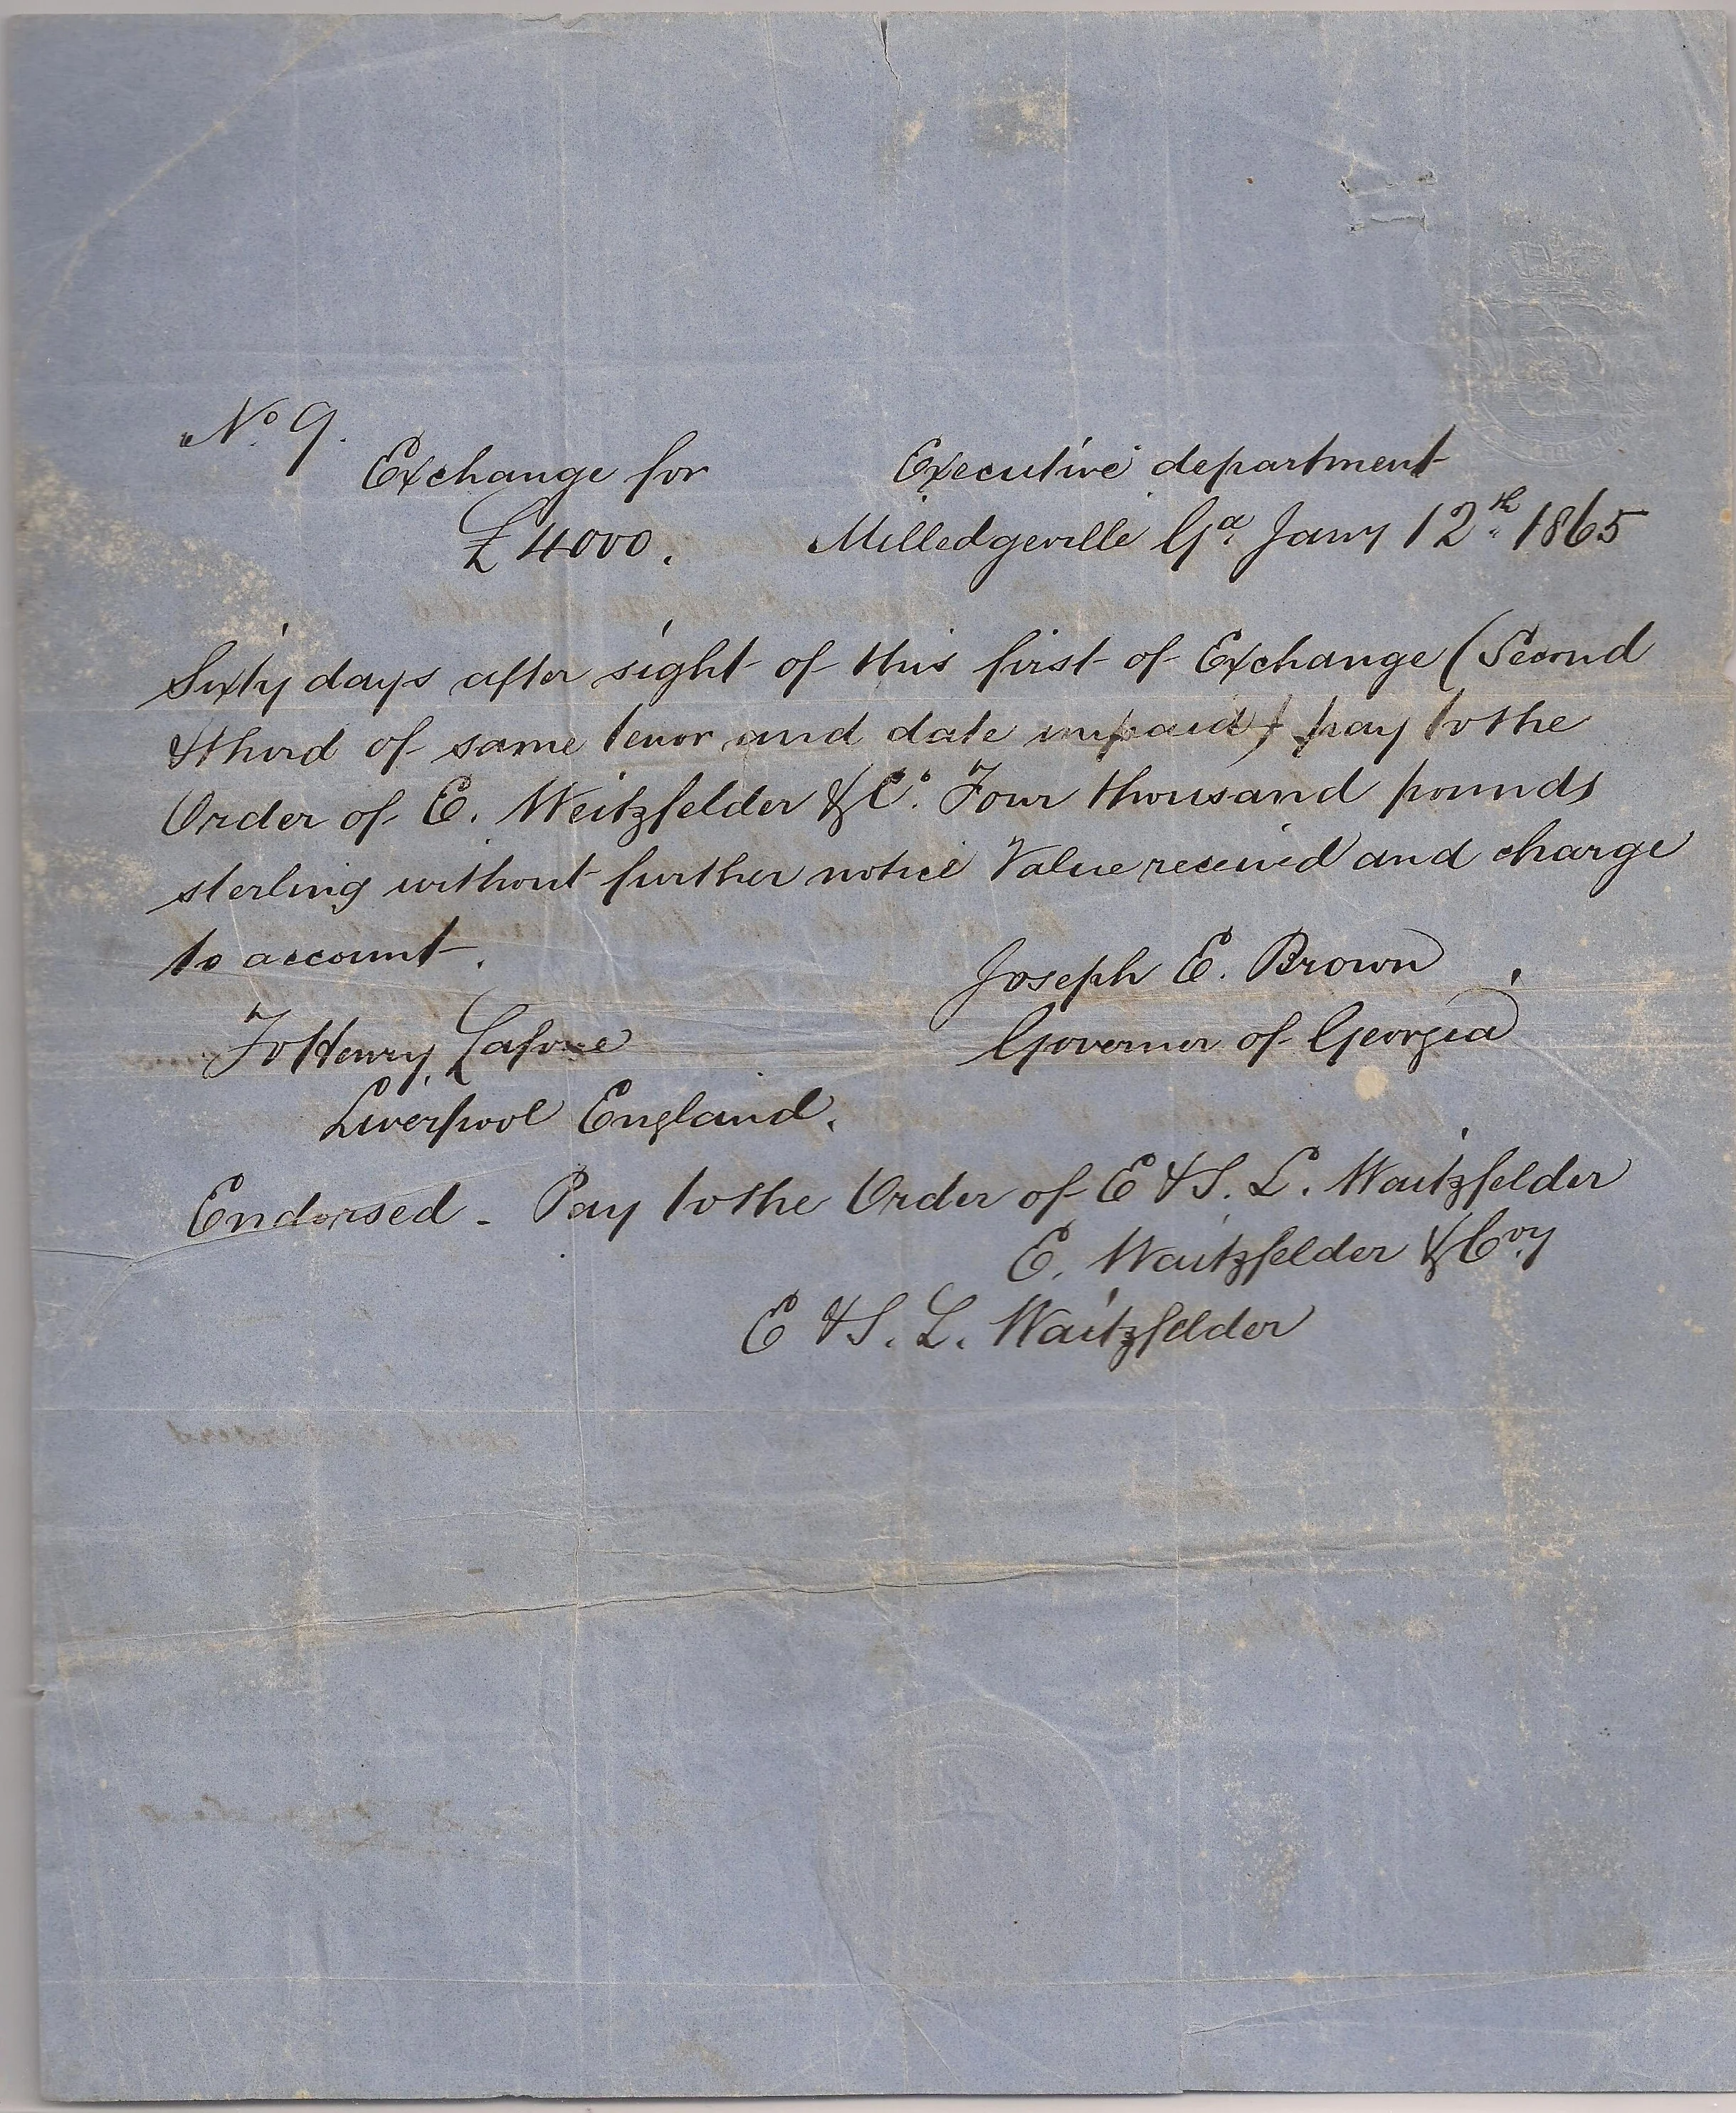 No. 9.
Exchange for
Executive department
£4000.
Milledgeville Ga. Jany 12th. 1865
Sixty days after sight of this first of Exchange (Second
& third of same tenor and date unpaid) pay to the
Order of E. Weitzfelder & Co. Four thousand pounds
sterling without further notice Value received and charge
to account.
Joseph E. Brown
To Henry Lafone
Governor of Georgia
Liverpool England.
Endorsed - Pay to the Order of E & S. L. Waitzfelder
E. Waitzfelder & Coy
E & S. L. Waitzfelder